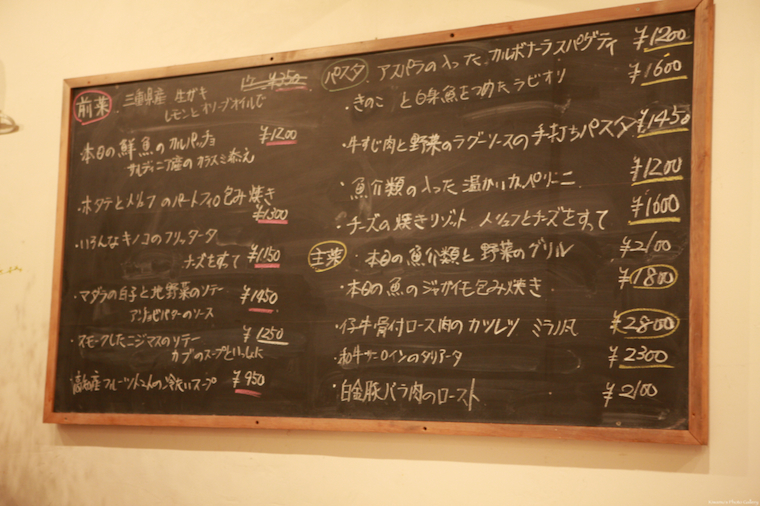 前菜
三重県産 生ガキ ¥350
レモンとオリーブオイルで
本日の鮮魚のカルパッチョ ¥1200
サルディニア産のカラスミ添え
・ホタテとメリュフのパートフィロ包み焼き
¥1300
・いろんなキノコのフリッタータ
チーズをすって ¥1150
・マダラの白子と地野菜のソテー
アンチョビバターのソース ¥1450
・スモークしたニジマスのソテー ¥1250
カブのスープといっしょに
・高知産フルーツトマトの冷たいスープ ¥950
パスタ アスパラの入ったカルボナーラスパゲティ ¥1200
・きのこと白身魚をつめたラビオリ ¥1600
・牛すじ肉と野菜のラグーソースの手打ちパスタ ¥1450
・魚介類の入った温かいカペリーニ ¥1200
・チーズの焼きリゾット メリュフとチーズをすって ¥1600
主菜 ・本日の魚介類と野菜のグリル ¥2100
・本日の魚のジャガイモ包み焼き ¥1800
・仔牛骨付ロース肉のカツレツ ミラノ風 ¥2800
・和牛サーロインのタリアータ ¥2300
・白金豚バラ肉のロースト ¥2100